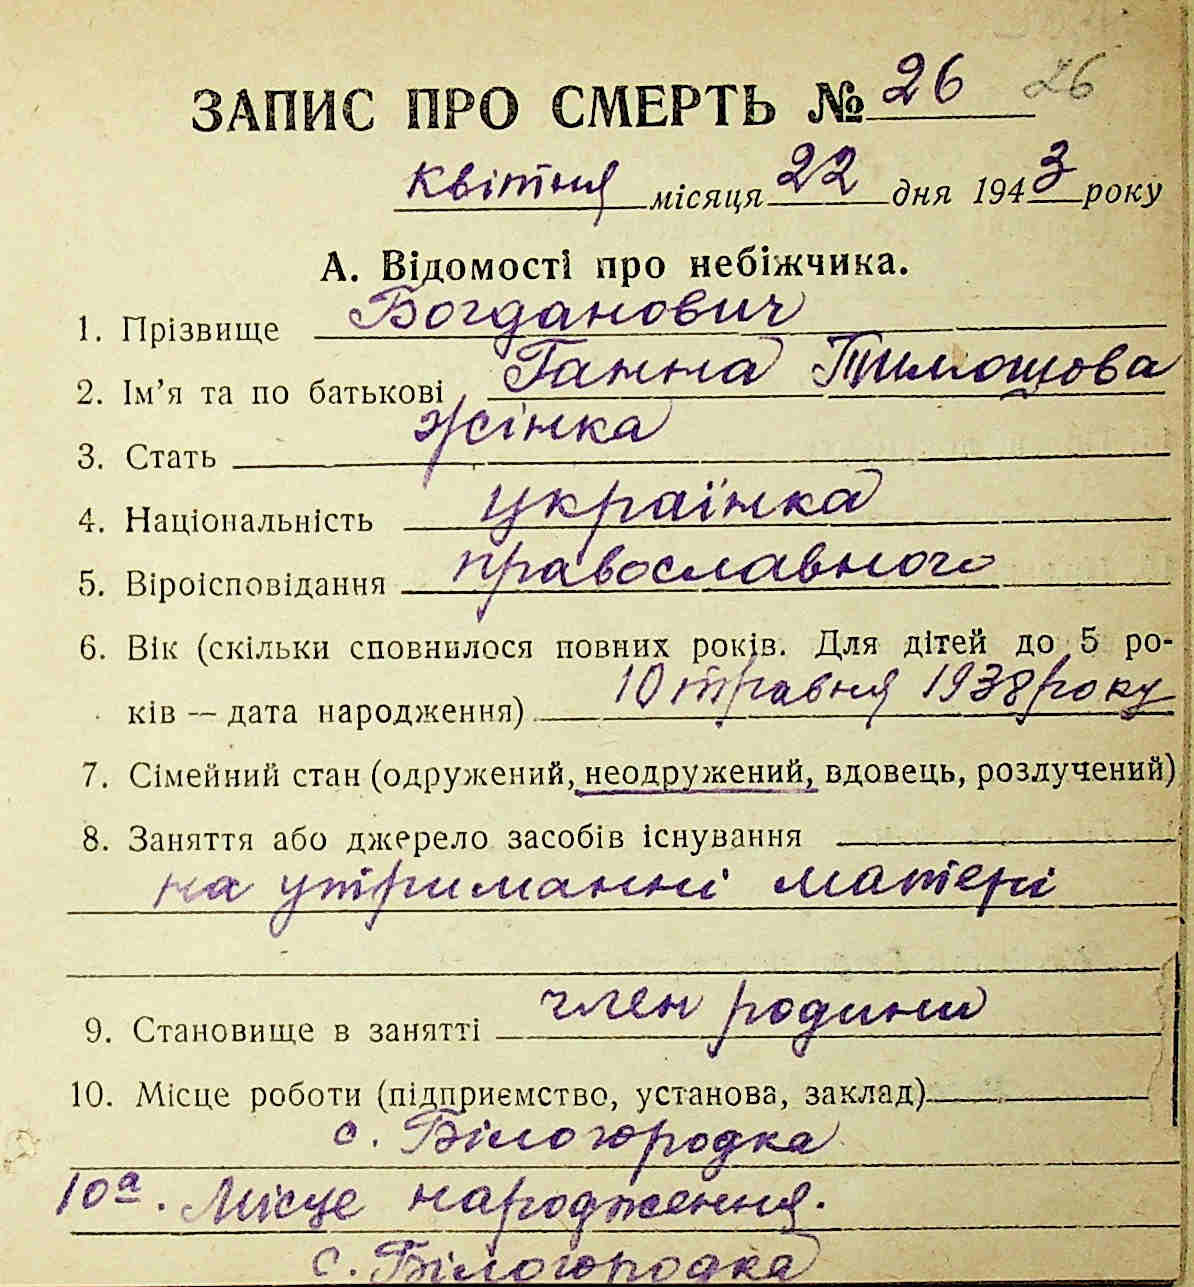 ЗАПИС ПРО СМЕРТЬ № 26 26
квітня місяця 22 дня 1943 року
А. Відомості про небіжчика.
1. Прізвище Богданович
2. Ім’я та по батькові Ганна Тимошова
3. Стать жінка
4. Національність українка
5. Віроісповідання православного
6. Вік (скільки сповнилося повних років. Для дітей до 5 ро-
ків — дата народження) 10 травня 1938 року
7. Сімейний стан (одружений, неодружений, вдовець, розлучений)
8. Заняття або джерело засобів існування
на утриманні матері
9. Становище в занятті член родини
10. Місце роботи (підприємство, установа, заклад)
с. Білогородка
10а. Місце народження.
с. Білогородка